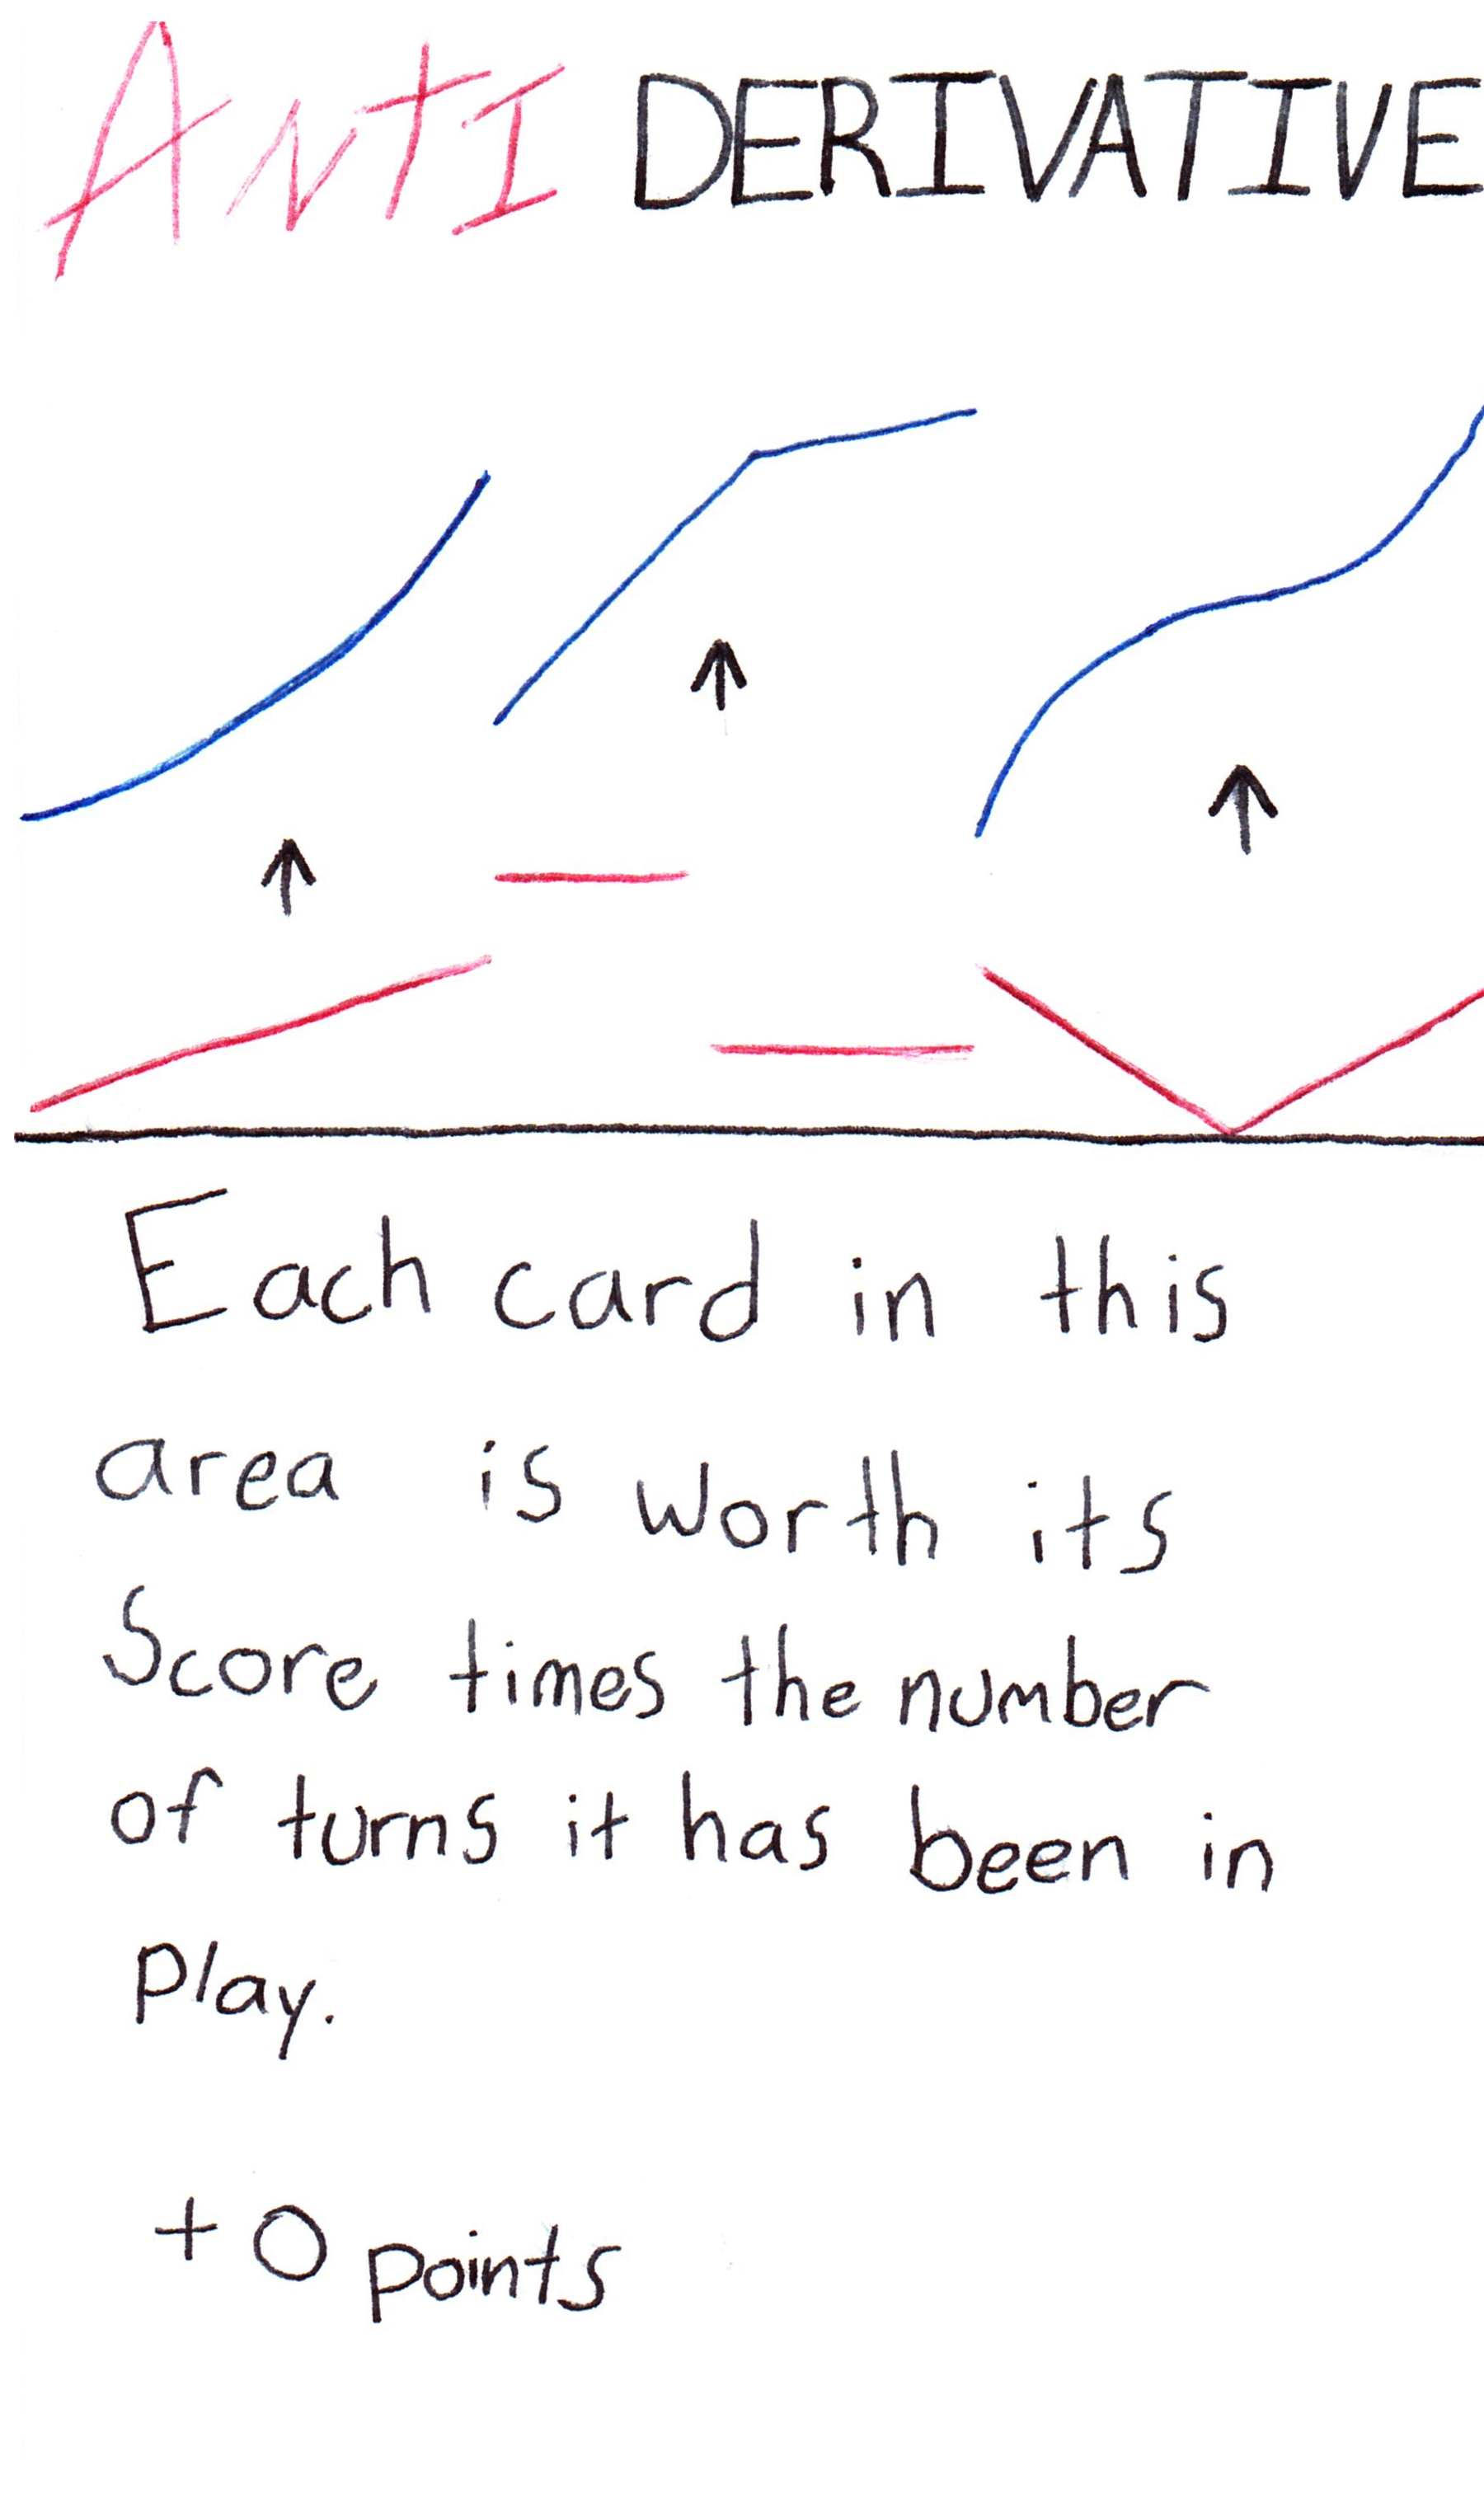 AntI DERIVATIVE
Each card in this
area is worth its
Score times the number
of turns it has been in
Play.
+0 points